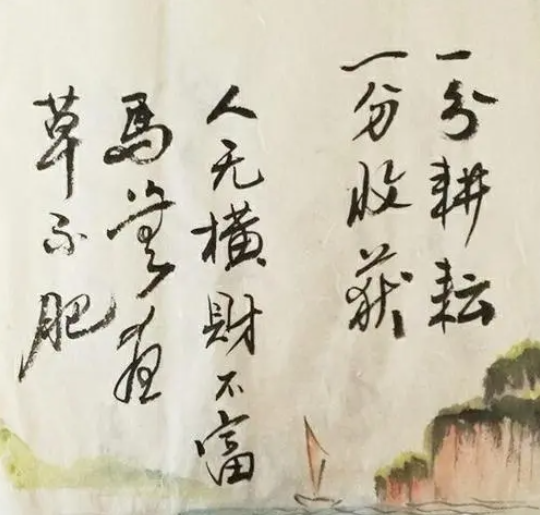 一分耕耘
一分收获
人无横财不富
馬無夜
草不肥